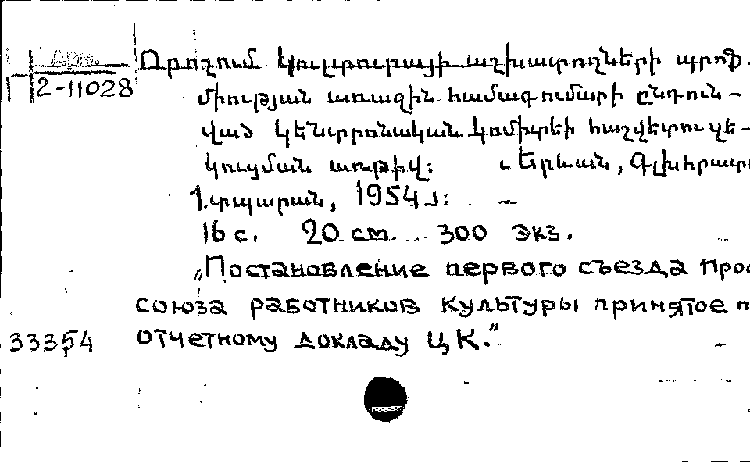 Арм.
2-11028
Որոշում կուլտուրայի աշխատողների պրոֆ.
միության առաջին համագումարի ընդուն-
ված կենտրոնական կոմիտեի հաշվետու զե-
կուցման առթիվ: Երևան, Գլխհրատ
1 տպարան, 1954 թ: –
16 с. 20 см. 300 экз.
„Постановление первого съезда Проф
союза работников культуры принятое п
33354 отчетному докладу ЦК.“